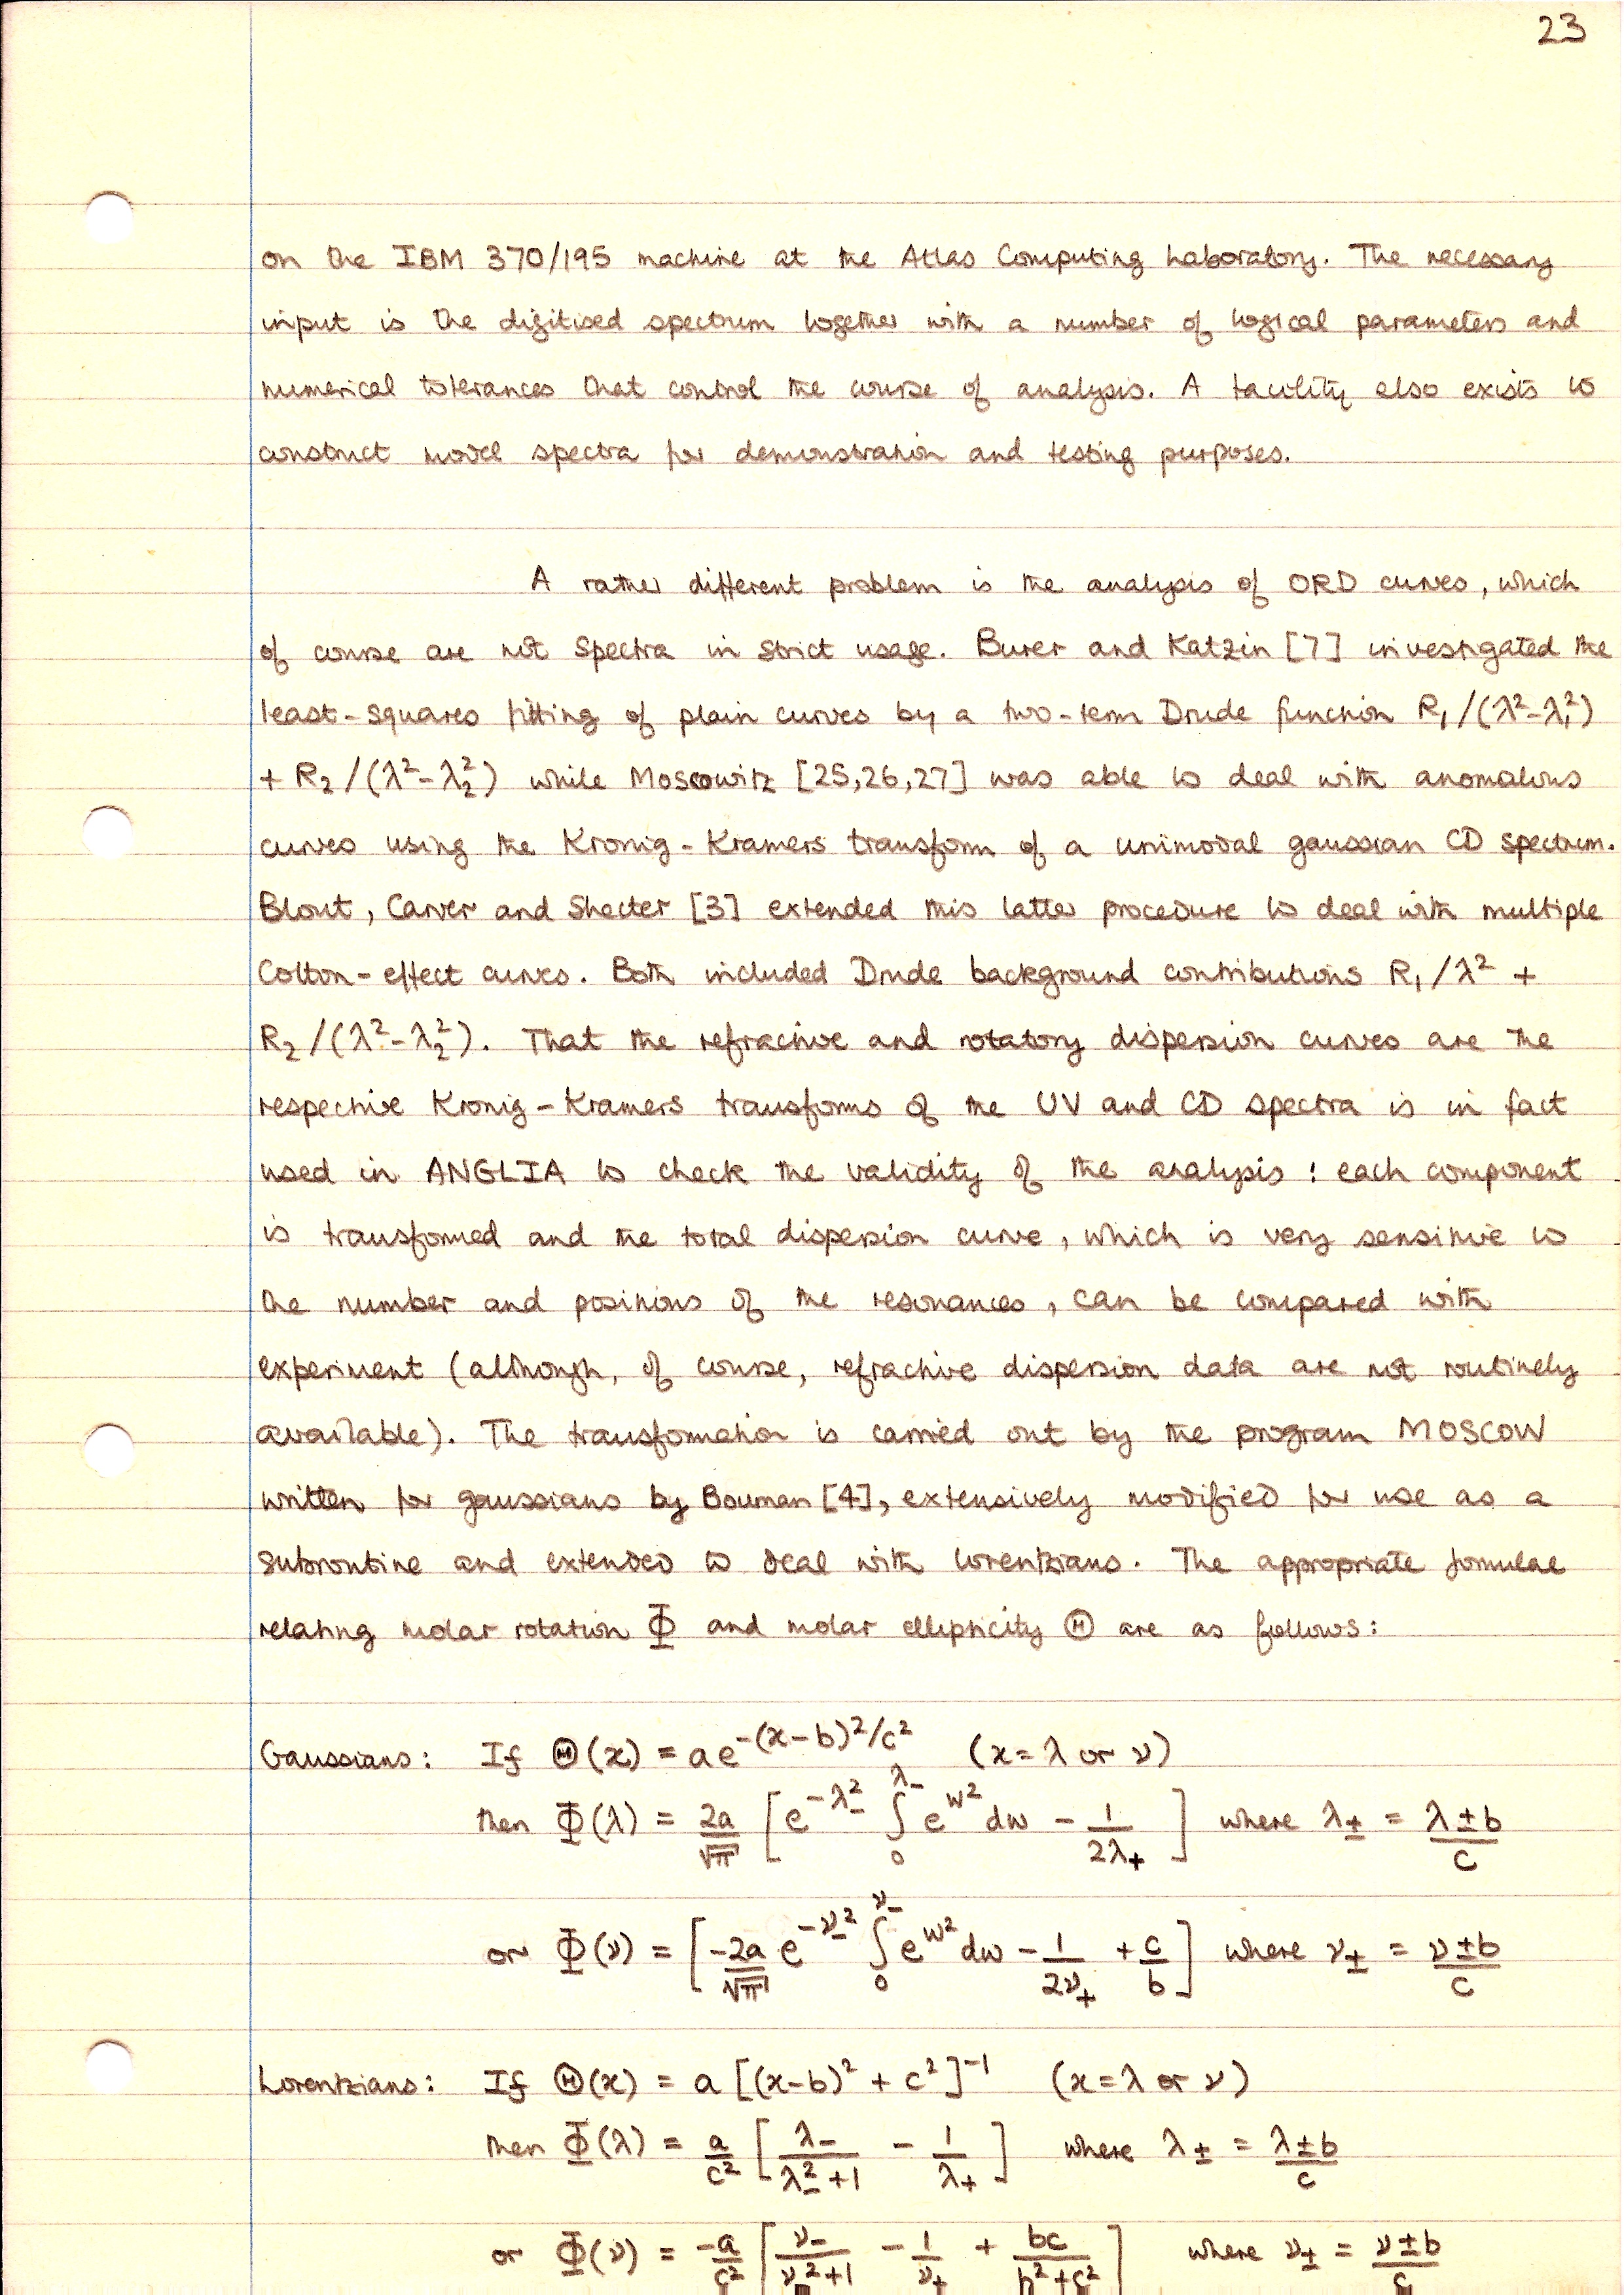 23
on the IBM 370/195 machine at the Atlas Computing Laboratory. The necessary
input is the digitised spectrum together with a number of logical parameters and
numerical tolerances that control the course of analysis. A facility also exists to
construct model spectra for demonstration and testing purposes.
A rather different problem is the analysis of ORD curves, which
of course are not spectra in strict usage. Burer and Katzin [7] investigated the
least-squares fitting of plain curves by a two-term Drude function R₁/(λ²-λ₁²)
+ R₂/(λ²-λ₂²) while Moscowitz [25,26,27] was able to deal with anomalous
curves using the Kronig-Kramers transform of a unimodal gaussian CD spectrum.
Blout, Carver and Shecter [3] extended this latter procedure to deal with multiple
Cotton-effect curves. Both included Drude background contributions R₁/λ² +
R₂/(λ²-λ₂²). That the refractive and rotatory dispersion curves are the
respective Kronig-Kramers transforms of the UV and CD spectra is in fact
used in ANGLIA to check the validity of the analysis: each component
is transformed and the total dispersion curve, which is very sensitive to
the number and positions of the resonances, can be compared with
experiment (although, of course, refractive dispersion data are not routinely
available). The transformation is carried out by the program MOSCOW
written for gaussians by Bouman [4], extensively modified for use as a
subroutine and extended to deal with lorentzians. The appropriate formulae
relating molar rotation Φ and molar ellipticity Θ are as follows:
Gaussians: If Θ(x) = ae^-(x-b)²/c² (x=λ or ν)
then Φ(λ) = 2a/√π [e^-λ₋² ∫₀^λ₋ e^w² dw - 1/2λ₊] where λ± = (λ±b)/c
or Φ(ν) = [-2a/√π e^-ν₋² ∫₀^ν₋ e^w² dw - 1/2ν₊ + c/b] where ν± = (ν±b)/c
Lorentzians: If Θ(x) = a[(x-b)² + c²]⁻¹ (x=λ or ν)
then Φ(λ) = a/c² [λ₋/(λ₋²+1) - 1/λ₊] where λ± = (λ±b)/c
or Φ(ν) = -a/c² [ν₋/(ν₋²+1) - 1/ν₊ + bc/(b²+c²)] where ν± = (ν±b)/c